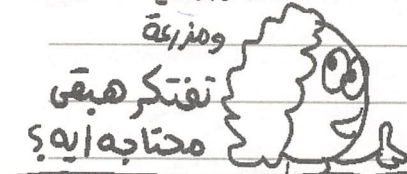 ومزرعة
تفتكر هبقى
محتاجه ايه؟